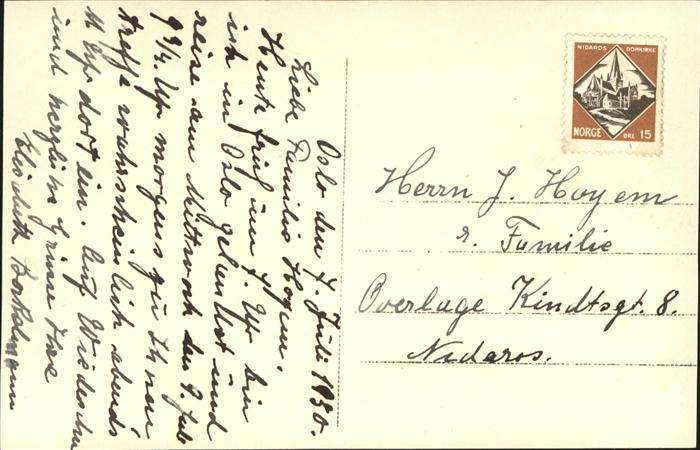 Oslo den 7. Juli 1930.
Liebe Familie Hoyem.
Heute früh um 7. Uhr bin
ich in Oslo gelandet und
reise am Mittwoch den 9. Juli
9¾ Uhr morgens zu Ihnen
treffe wahrscheinlich abends
11 Uhr dort ein. Auf Wiedersehn
und herzliche Grüsse Ihre
Elisabeth
NIDAROS DOMKIRKE
NORGE ØRE 15
Herrn J. Hoyem
u. Familie
Overlage Kindtsgt. 8.
Nidaros.